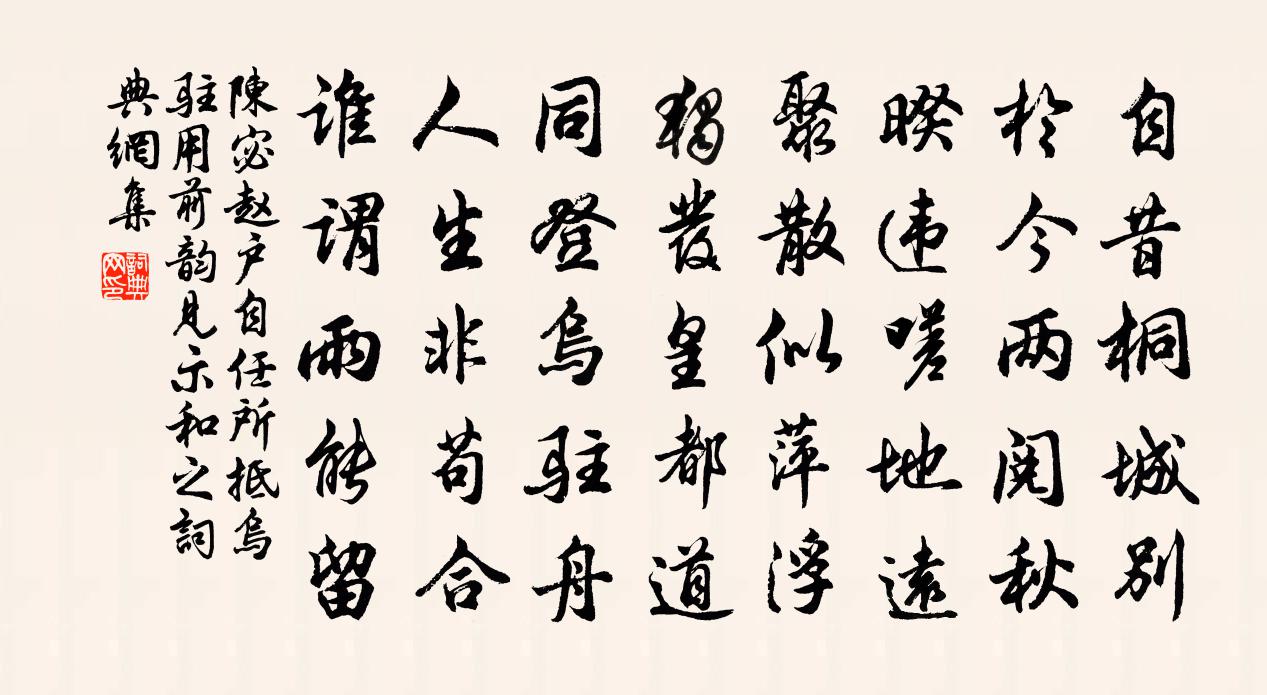 自昔桐城别
於今两阅秋
暌违嗟地远
聚散似萍浮
独发皇都道
同登乌驻舟
人生非苟合
谁谓雨能留
陳宓赵户自任所抵烏
駐用前韵見示和之詞
典網集
詞典网印